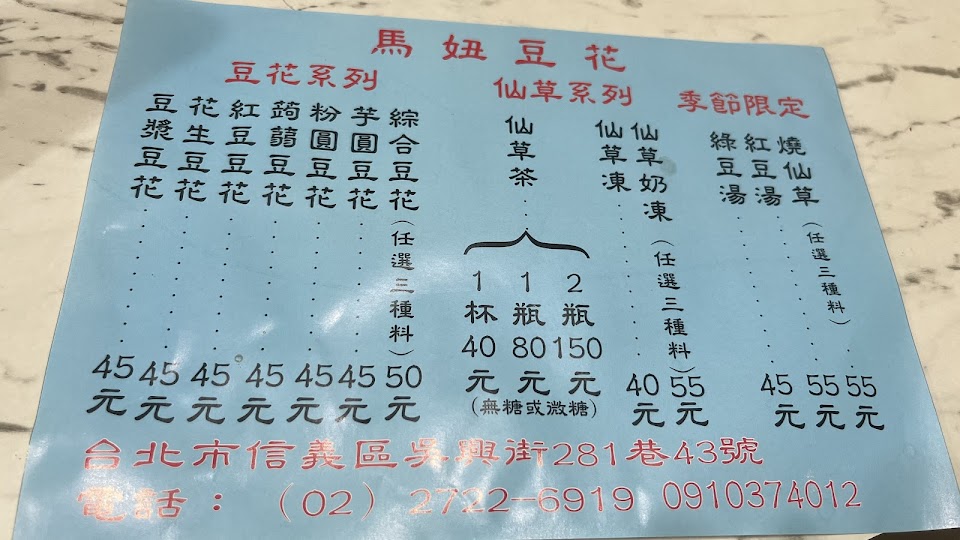 馬妞豆花
豆花系列
綜合豆花(任選三種料)50元
芋圓豆花45元
粉圓豆花45元
蒟蒻豆花45元
紅豆豆花45元
花生豆花45元
豆漿豆花45元
仙草系列
仙草奶凍(任選三種料)55元
仙草凍40元
仙草茶
1杯40元
1瓶80元
2瓶150元
(無糖或微糖)
季節限定
燒仙草(任選三種料)55元
紅豆湯55元
綠豆湯45元
台北市信義區吳興街281巷43號
電話:(02)2722-6919 0910374012